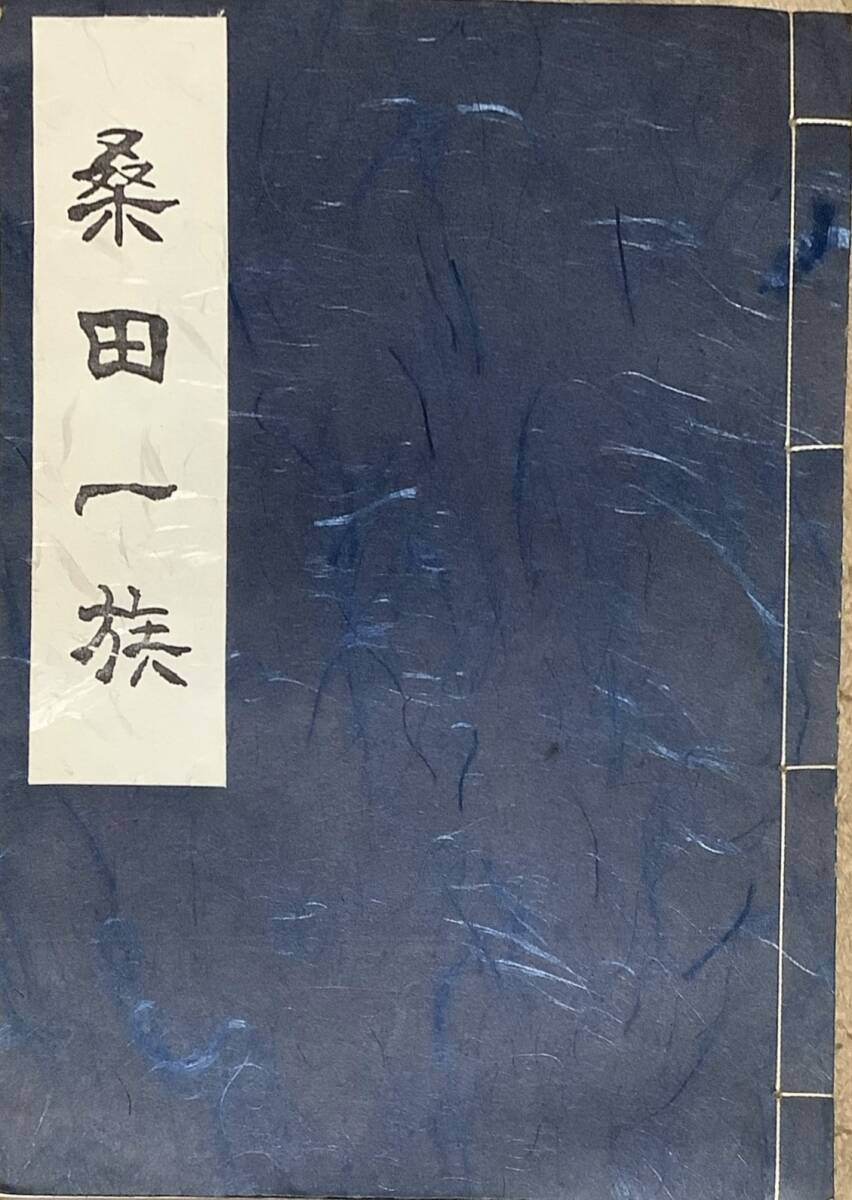 桑田一族